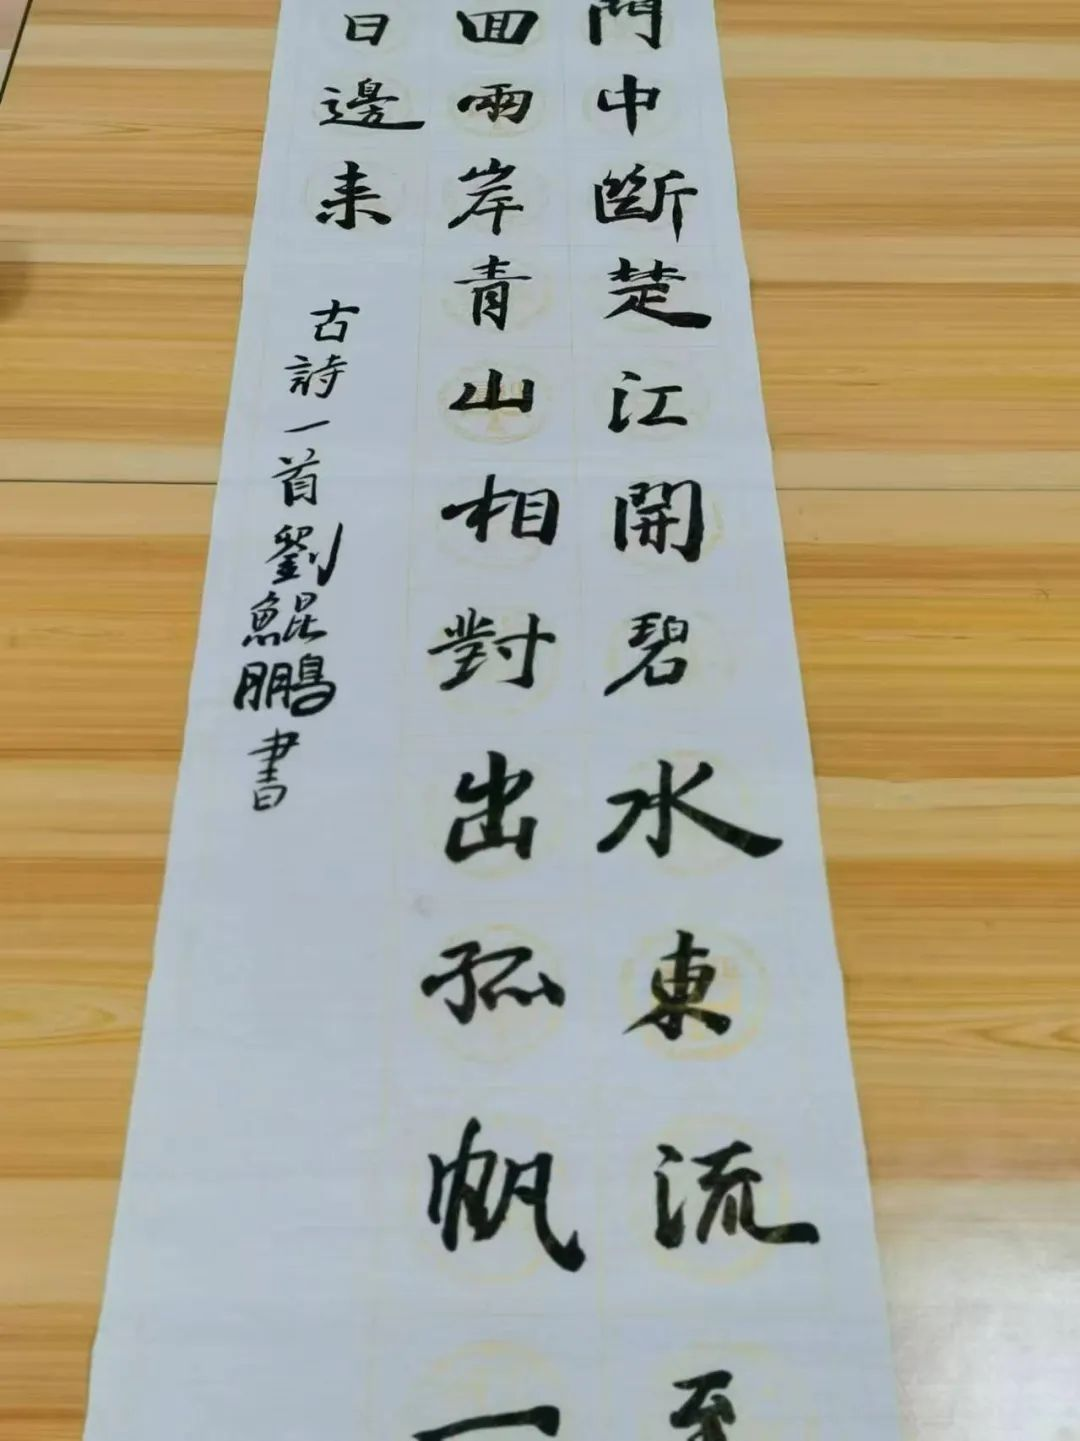 門中斷楚江開碧水東流至
回兩岸青山相對出孤帆一
日邊来
古詩一首劉鯤鵬書